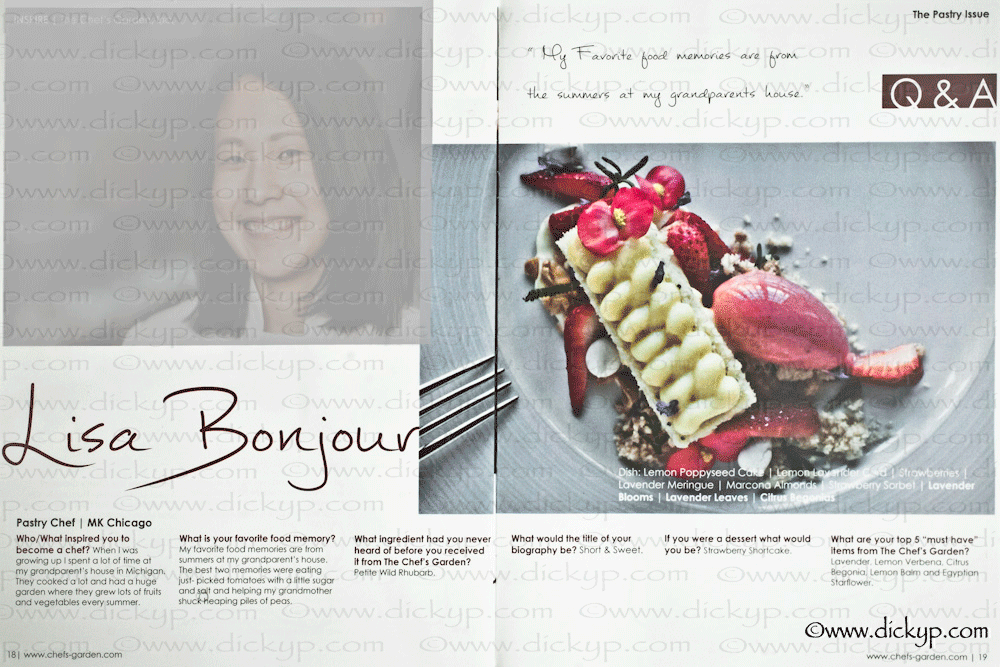 INSPIRE | The Chef's Garden
The Pastry Issue
“ My Favorite food memories are from
the summers at my grandparents house.”
Q & A
Lisa Bonjour
Dish: Lemon Poppyseed Cake | Lemon Lavender Curd | Strawberries |
Lavender Meringue | Marcona Almonds | Strawberry Sorbet | Lavender
Blooms | Lavender Leaves | Citrus Begonias
Pastry Chef | MK Chicago
Who/What inspired you to
become a chef? When I was
growing up I spent a lot of time at
my grandparent's house in Michigan.
They cooked a lot and had a huge
garden where they grew lots of fruits
and vegetables every summer.
What is your favorite food memory?
My favorite food memories are from
summers at my grandparent's house.
The best two memories were eating
just- picked tomatoes with a little sugar
and salt and helping my grandmother
shuck heaping piles of peas.
What ingredient had you never
heard of before you received
it from The Chef's Garden?
Petite Wild Rhubarb.
What would the title of your
biography be? Short & Sweet.
If you were a dessert what would
you be? Strawberry Shortcake.
What are your top 5 “must have”
items from The Chef's Garden?
Lavender, Lemon Verbena, Citrus
Begonia, Lemon Balm and Egyptian
Starflower.
©www.dickyp.com
18 | www.chefs-garden.com
www.chefs-garden.com | 19